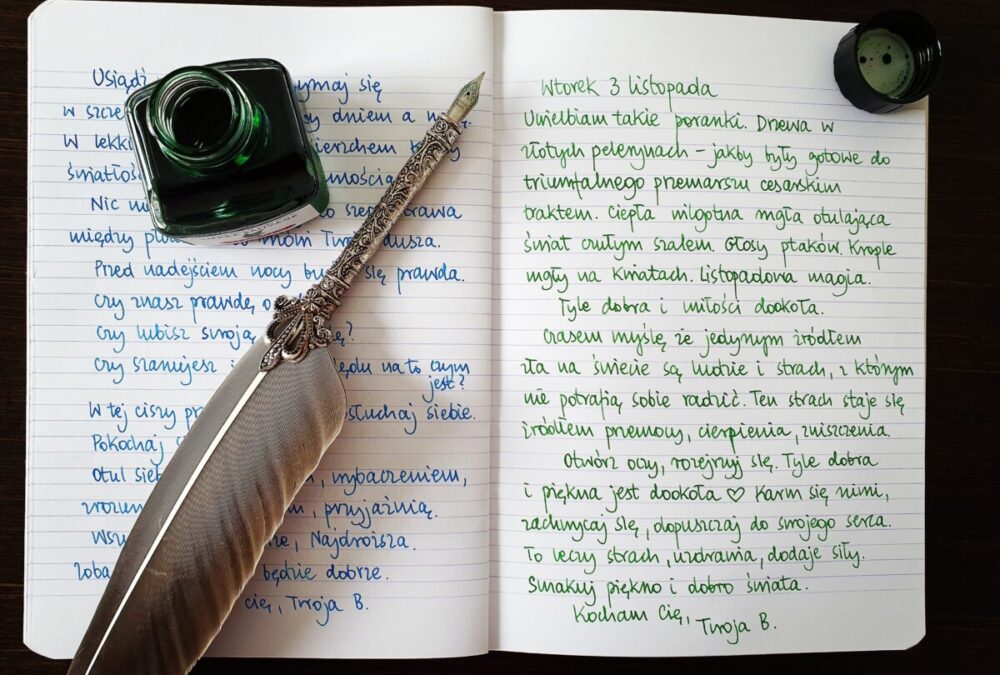 Usiądź ymaj się
w szcze y dniem a
w lekki ierzchem
światłoś nością
Nic szept
między moim Tw dusza.
Przed nadejściem nocy bu się prawda.
Czy znasz prawdę o
Czy lubisz swoją ?
Czy szanujesz względu na to czym
jest?
W tej ciszy słuchaj siebie.
Pokochaj
Otul sieb , wybaczeniem,
zrozum , przyjaźnią.
Wsz , Najdroższa.
zoba będzie dobrze.
cię, Twoja B.
Wtorek 3 listopada
Uwielbiam takie poranki. Drzewa w
złotych pelerynach - jakby były gotowe do
triumfalnego przemarszu cesarskim
traktem. Ciepła wilgotna mgła otulająca
świat czułym szalem. Głosy ptaków. Krople
mgły na kwiatach. Listopadowa magia.
Tyle dobra i miłości dookoła.
Czasem myślę że jedynym źródłem
zła na świecie są ludzie i strach, z którym
nie potrafią sobie radzić. Ten strach staje się
źródłem przemocy, cierpienia, zniszczenia.
Otwórz oczy, rozejrzyj się. Tyle dobra
i piękna jest dookoła ♡ Karm się nimi,
zachwycaj się, dopuszczaj do swojego serca.
To leczy strach, uzdrawia, dodaje siły.
Smakuj piękno i dobro świata.
Kocham Cię,
Twoja B.